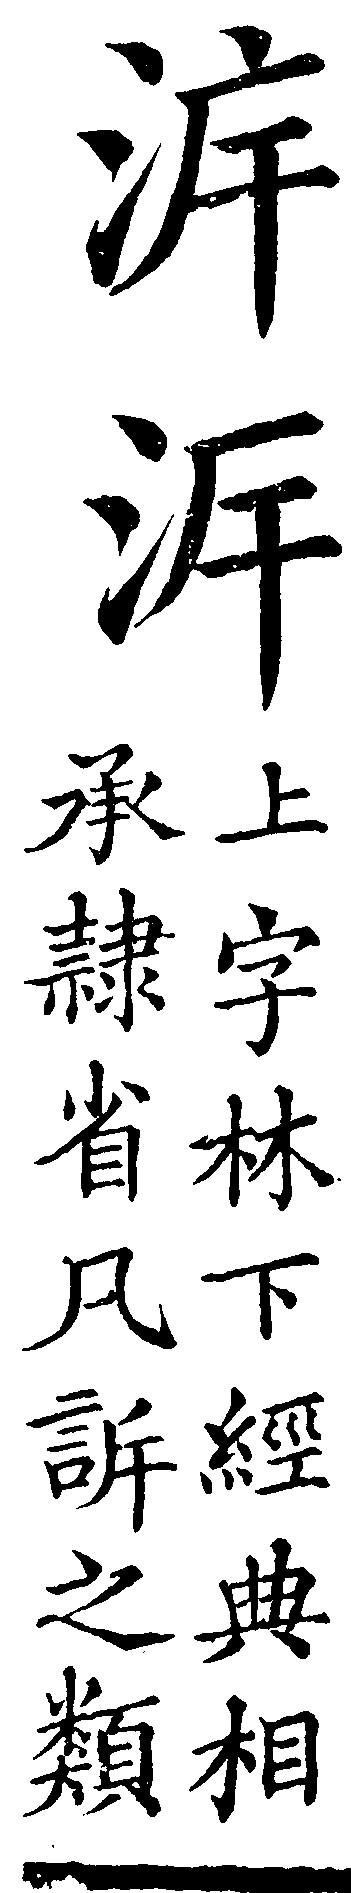 泝
上字林下經典相
承隸省凡訴之類